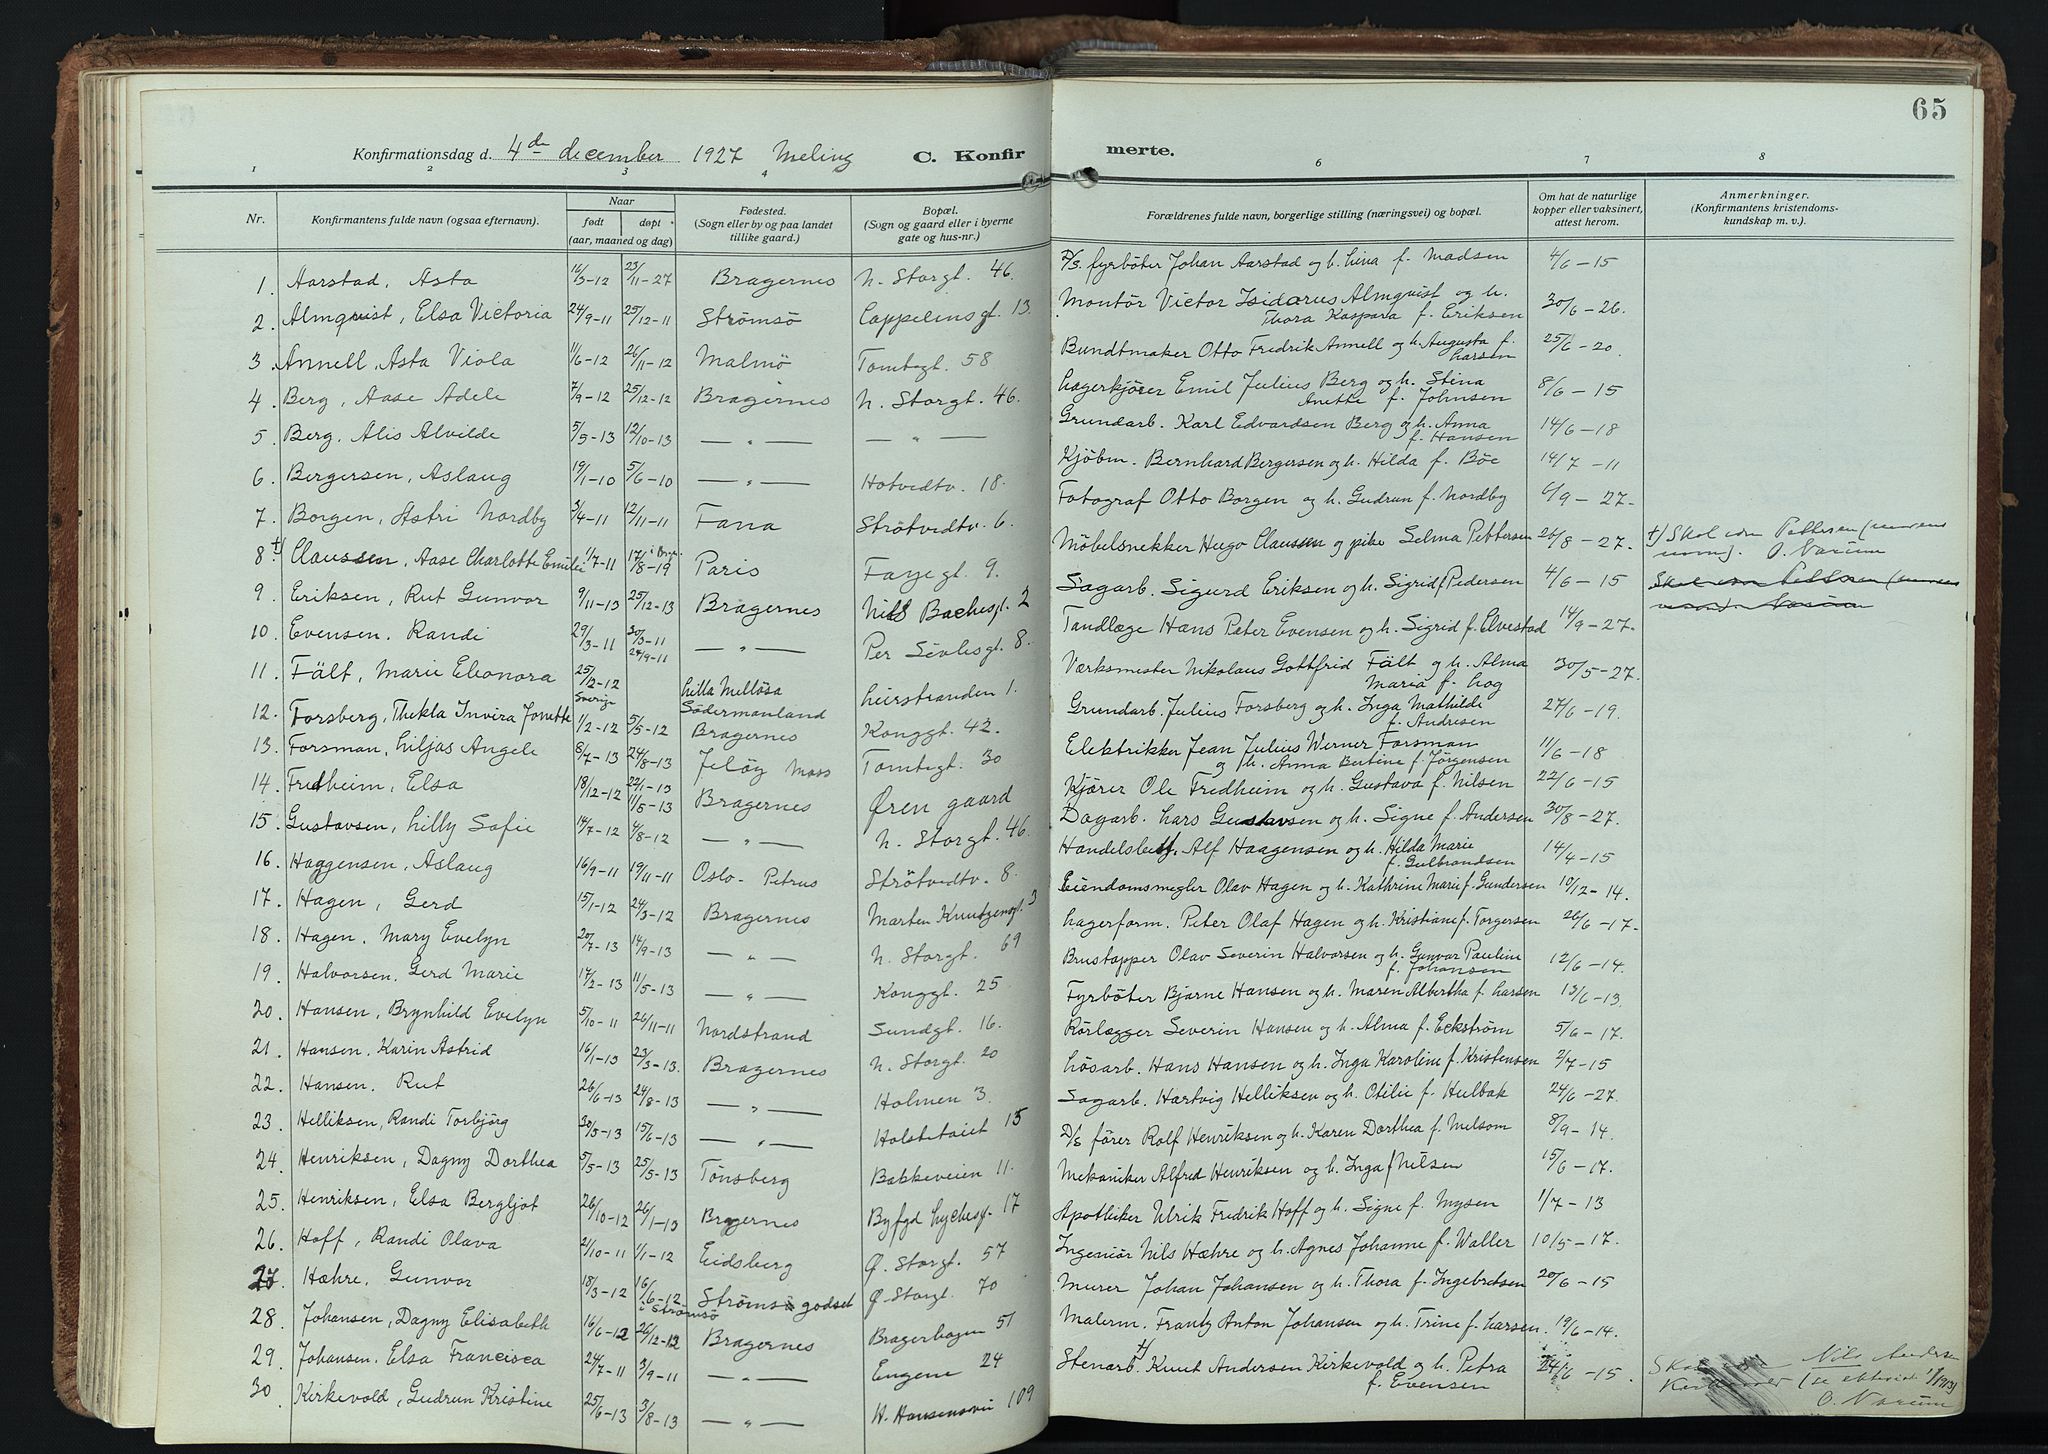 65
Konfirmationsdag d. 4de december 1927 Meling C. Konfirmerte.
1 2 3 4 6 7 8
Nr. Konfirmantens fulde navn (ogsaa efternavn). Naar født døpt (aar, maaned og dag) Fødested. (Sogn eller by og paa landet tillike gaard.) Bopæl. (Sogn og gaard eller i byerne gate og hus-nr.) Forældrenes fulde navn, borgerlige stilling (næringsvei) og bopæl. Om hat de naturlige kopper eller vaksinert, attest herom. Anmerkninger. (Konfirmantens kristendomskundskap m. v.).
1. Aarstad, Asta 16/3-12 23/11-27 Bragernes N. Storgt. 46. D/S. fyrböter Johan Aarstad og h. Lina f. Madsen 4/6-15
2. Almqvist, Elsa Victoria 24/9-11 25/12-11 Strömsö Cappelensgt. 13. Montör Victor Isidorus Almqvist og h. Thora Kaspara f. Eriksen 30/6-26.
3. Annell, Asta Viola 11/6-12 26/11-12 Malmö Tomtegt. 58 Bundtmaker Otto Fredrik Annell og h. Augusta f. Larsen 25/6-20.
4. Berg, Aase Adele 7/9-12 25/12-12 Bragernes N. Storgt. 46. Lagerkjörer Emil Julius Berg og h. Stina Anette f. Johnsen 8/6-15
5. Berg, Alis Alvilde 5/5-13 12/10-13 — „ — — „ — Grundarb. Karl Edvardsen Berg og h. Anna f. Hansen 14/6-18
6. Bergersen, Aslaug 19/1-10 5/6-10 — „ — Hotvedtv. 18. Kjöbm. Bernhard Bergersen og h. Hilda f. Böe 14/7-11
7. Borgen, Astri Nordby 3/4-11 12/11-11 Fana Strötvedtv. 6. Fotograf Otto Borgen og h. Gudrun f. Nordby 6/9-27.
8. t) Claussen, Aase Charlotte Emilie 1/7-11 17/8-19 Paris Fayegt. 9. Möbelsnekker Hugo Claussen og pike Selma Pettersen 26/8-27. t) Skal
9. Eriksen, Rut Gunvor 9/11-13 25/12-13 Bragernes Nils Bachesgt. 2 Sagarb. Sigurd Eriksen og h. Sigrid f. Pedersen 4/6-15
10. Evensen, Randi 29/3-11 30/3-11 24/9-11 — „ — Per Sivlesgt. 8. Tandlæge Hans Peter Evensen og h. Sigrid f. Elvestad 14/9-27.
11. Fält, Marie Eleonora 25/12-12 Sverige Lilla Mellösa Södermanland Leirstranden 1. Værksmester Nikolaus Gottfrid Fält og h. Alma Maria f. Log 30/5-27.
12. Forsberg, Thekla Invira Jonette 1/2-12 5/5-12 Bragernes Konggt. 42. Grundarb. Julius Forsberg og h. Inga Mathilde f. Andresen 27/6-19.
13. Forsman, Liljas Angele 8/7-13 24/8-13 Jelöy Moss Tomtegt. 30 Elektrikker Jean Julius Werner Forsman og h. Anna Bertine f. Jörgensen 11/6-18
14. Fredheim, Elsa 18/12-12 22/1-13 11/5-13 Bragernes Øren gaard Kjörer Ole Fredheim og h. Gustava f. Nilsen 22/6-15
15. Gustavsen, Lilly Sofie 14/7-12 4/8-12 — „ — N. Storgt. 46. Dagarb. Lars Gustavsen og h. Signe f. Andersen 30/8-27.
16. Haagensen, Aslaug 16/9-11 19/11-11 Oslo- Petrus Strötvedtv. 8. Handelsbetj. Alf Haagensen og h. Hilda Marie f. Gulbrandsen 14/4-15
17. Hagen, Gerd 15/1-12 24/3-12 Bragernes Marten Knutzensgt. 3 Eiendomsmegler Olav Hagen og h. Kathrine Marie f. Gundersen 10/12-14.
18. Hagen, Mary Evelyn 20/7-13 14/9-13 — „ — N. Storgt. 69 Lagerform. Peter Olaf Hagen og h. Kristiane f. Torgersen 26/6-17.
19. Halvorsen, Gerd Marie 14/2-13 11/5-13 — „ — Konggt. 25 Brustapper Olav Severin Halvorsen og h. Gunvor Pauline f. Johansen 12/6-14.
20. Hansen, Brynhild Evelyn 5/10-11 26/11-11 Nordstrand Sundgt. 16. Fyrböter Bjarne Hansen og h. Maren Albertha f. Larsen 13/6-13.
21. Hansen, Karin Astrid 16/1-13 23/3-13. Bragernes N. Storgt. 20 Rörlægger Severin Hansen og h. Alma f. Eckström 5/6-17.
22. Hansen, Rut 26/6-13 24/8-13 — „ — Holmen 3. Lösarb. Hans Hansen og h. Inga Karoline f. Kristensen 2/7-15
23. Helliksen, Randi Torbjörg 30/5-13 15/6-13 — „ — Holstetaiet 15 Sagarb. Hartvig Helliksen og h. Otilie f. Hulbak 24/6-27.
24. Henriksen, Dagny Dorthea 5/5-13 25/5-13 Tönsberg Bakkeveien 11. D/S förer Rolf Henriksen og h. Karen Dorthea f. Melsom 8/9-14.
25. Henriksen, Elsa Bergljot 26/10-12 26/1-13 Bragernes Byfgd Lychesgt. 17 Mekaniker Alfred Henriksen og h. Inga f Nilsen 15/6-17.
26. Hoff, Randi Olava 21/10-11 1/1-12 Eidsberg Ø. Storgt. 57 Apotheker Ulrik Fredrik Hoff og h. Signe f. Mysen 1/7-13
27. Hæhre, Gunvor 18/3-12 16/6-12 i Strömsö Strömsögodset Ø. Storgt. 70 Ingeniör Nils Hæhre og h. Agnes Johanne f. Waller 10/5-17.
28. Johansen, Dagny Elisabeth 16/6-12 26/12-12 Bragernes Bragerhagen 51 Murer Johan Johansen og h. Thora f. Ingebretsen 20/6-15
29. Johansen, Elsa Francisca 24/7-11 3/9-11 — „ — Eugene 24 Malerm. Frantz Anton Johansen og h. Trine f. Larsen. 19/6-14.
30. Kirkevold, Gudrun Kristine 25/6-13 3/8-13 — „ — H. Hansensvei 109 Stenarb. t) Knut Andersen Kirkevold og h. Petra f. Evensen 24/6-15. Nils Andersen